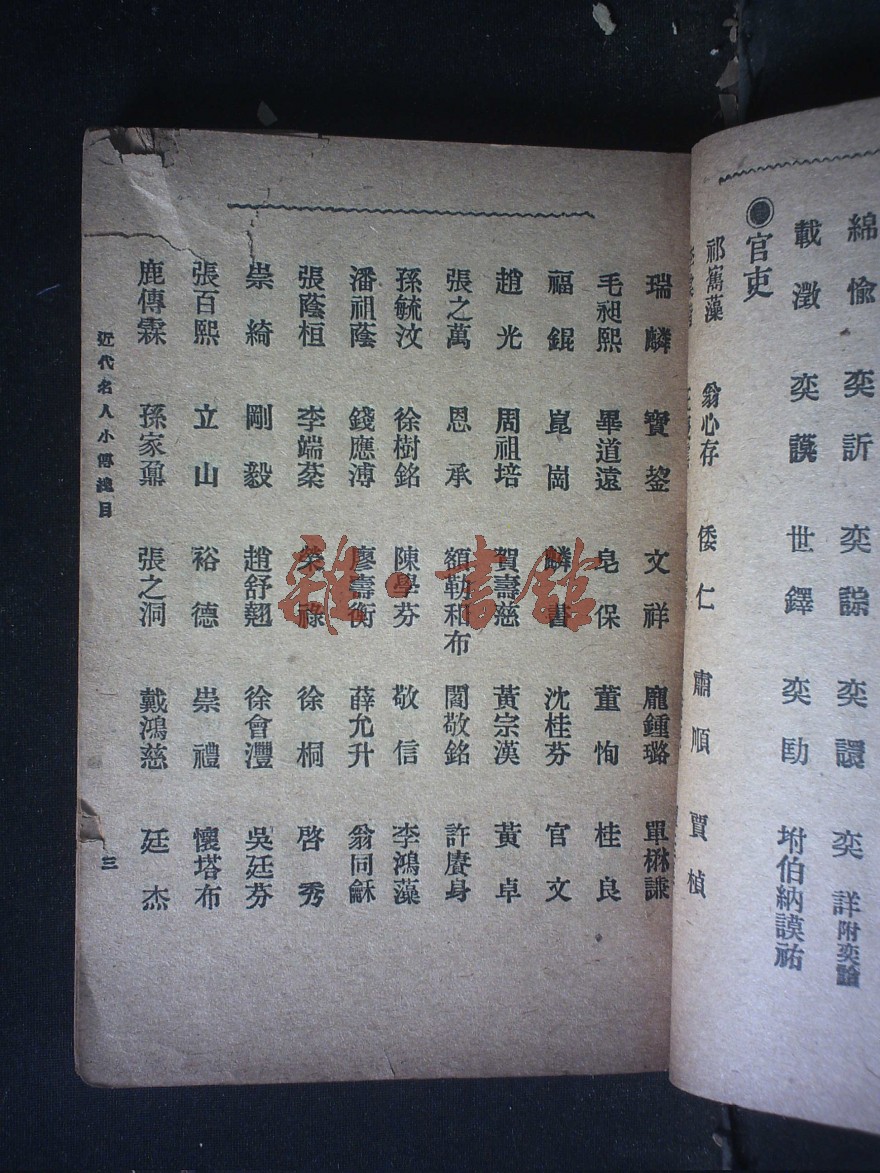 綿愉 奕訢 奕誴 奕譞 奕詳附奕譮
載澂 奕謨 世鐸 奕劻 坿伯納謨祜
官吏
祁寯藻 翁心存 倭仁 肅順 賈楨
瑞麟 寶鋆 文祥 龐鍾璐 單懋謙
毛昶熙 畢道遠 皂保 董恂 桂良
福錕 崑岡 麟書 沈桂芬 官文
趙光 周祖培 賀壽慈 黃宗漢 黃卓
張之萬 恩承 額勒和布 閻敬銘 許賡身
孫毓汶 徐樹銘 陳學芬 敬信 李鴻藻
潘祖蔭 錢應溥 廖壽衡 薛允升 翁同龢
張蔭桓 李端棻 榮祿 徐桐 啓秀
崇綺 剛毅 趙舒翹 徐會灃 吳廷芬
張百熙 立山 裕德 崇禮 懷塔布
鹿傳霖 孫家鼐 張之洞 戴鴻慈 廷杰
近代名人小傳總目
三
雜·書館